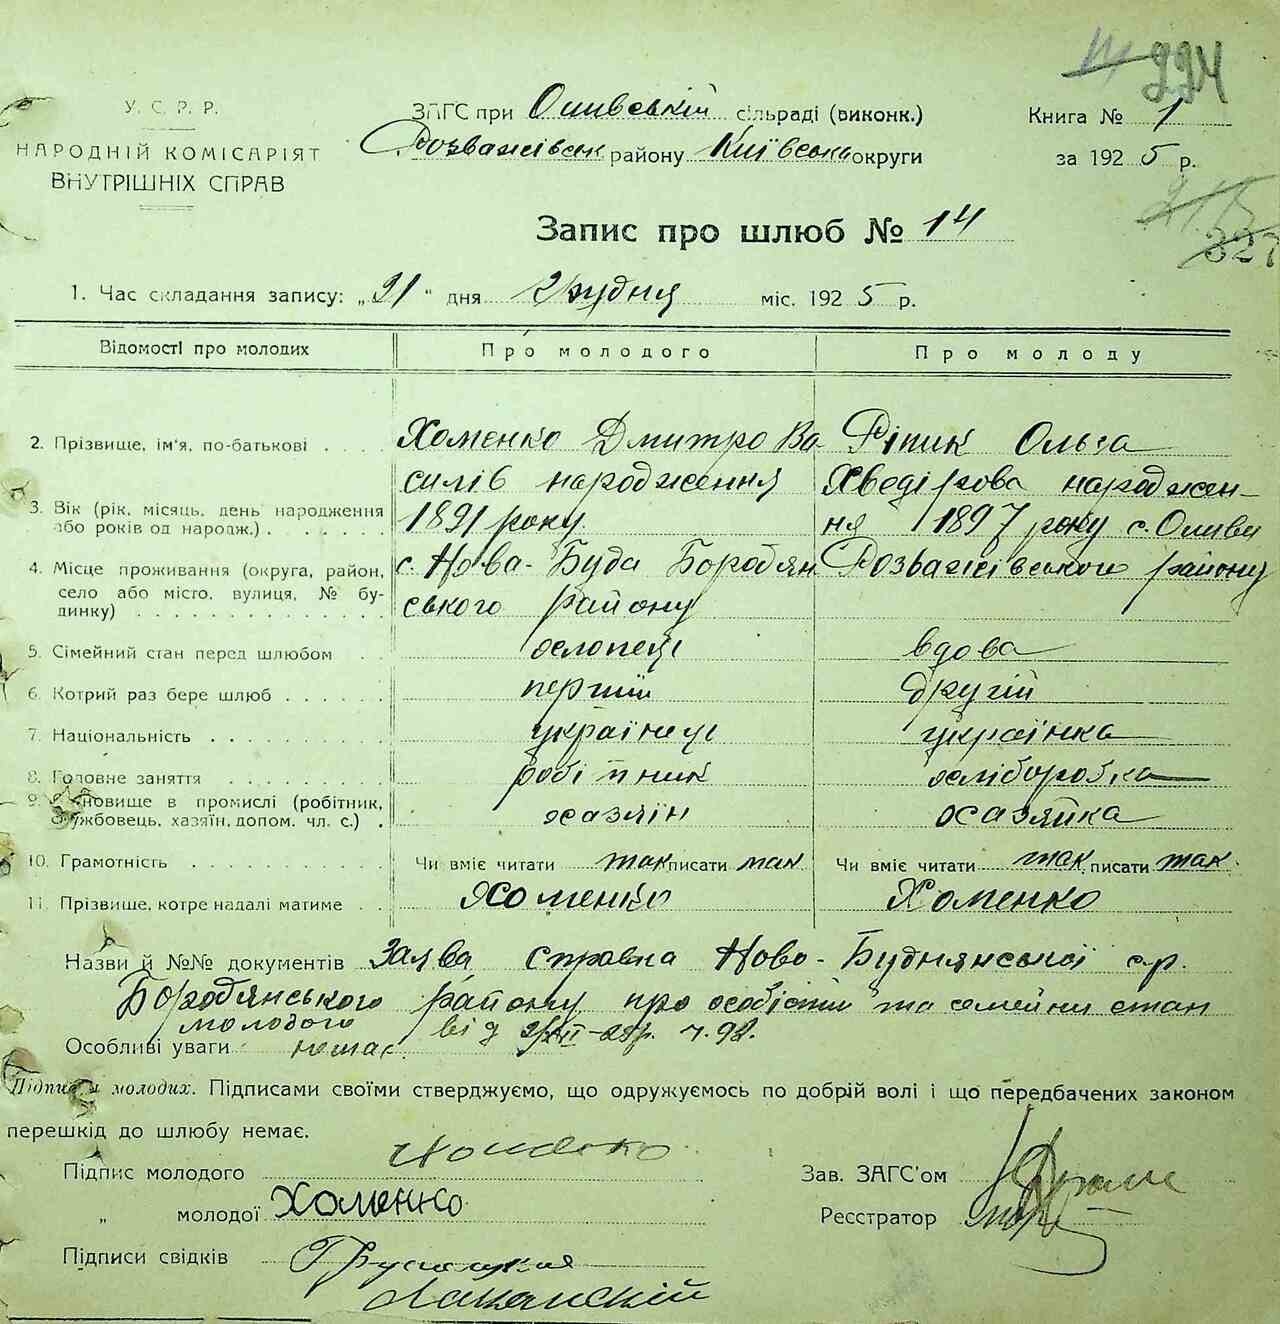 224
У. С. Р. Р.
НАРОДНІЙ КОМІСАРІЯТ
ВНУТРІШНІХ СПРАВ
ЗАГС при Оливській сільраді (виконк.)
Розважівськ району Київська округи
Книга № 1
за 1925 р.
327
Запис про шлюб № 14
1. Час складання запису: „21" дня грудня міс. 1925 р.
Відомості про молодих Про молодого Про молоду
2. Прізвище, ім'я, по-батькові Хоменко Дмитро Ва Ріпик Ольга
силів народження Хведірова народжен-
3. Вік (рік, місяць, день народження
або років од народж.) 1891 року. ня 1897 року с. Оливи
4. Місце проживання (округа, район, с. Нова-Буда Бородян Розважівського району
село або місто, вулиця, № бу-
динку) ського району
5. Сімейний стан перед шлюбом вдова
6. Котрий раз бере шлюб перший другій
7. Національність українець українка
8. Головне заняття робітник хліборобка
9. Становище в промислі (робітник,
службовець, хазяїн, допом. чл. с.) хазяін хазяйка
10. Грамотність Чи вміє читати так писати так Чи вміє читати так писати так.
11. Прізвище, котре надалі матиме Хоменко Хоменко
Назви й №№ документів Заява справка Ново-Буднянської с.р.
Бородянського району про особістий та семейни стан
молодого від
Особливі уваги немає.
Підписи молодих. Підписами своїми стверджуємо, що одружуємось по добрій волі і що передбачених законом
перешкід до шлюбу немає.
Підпис молодого Хоменко
„ молодої Хоменко
Зав. ЗАГС'ом
Реєстратор
Підписи свідків